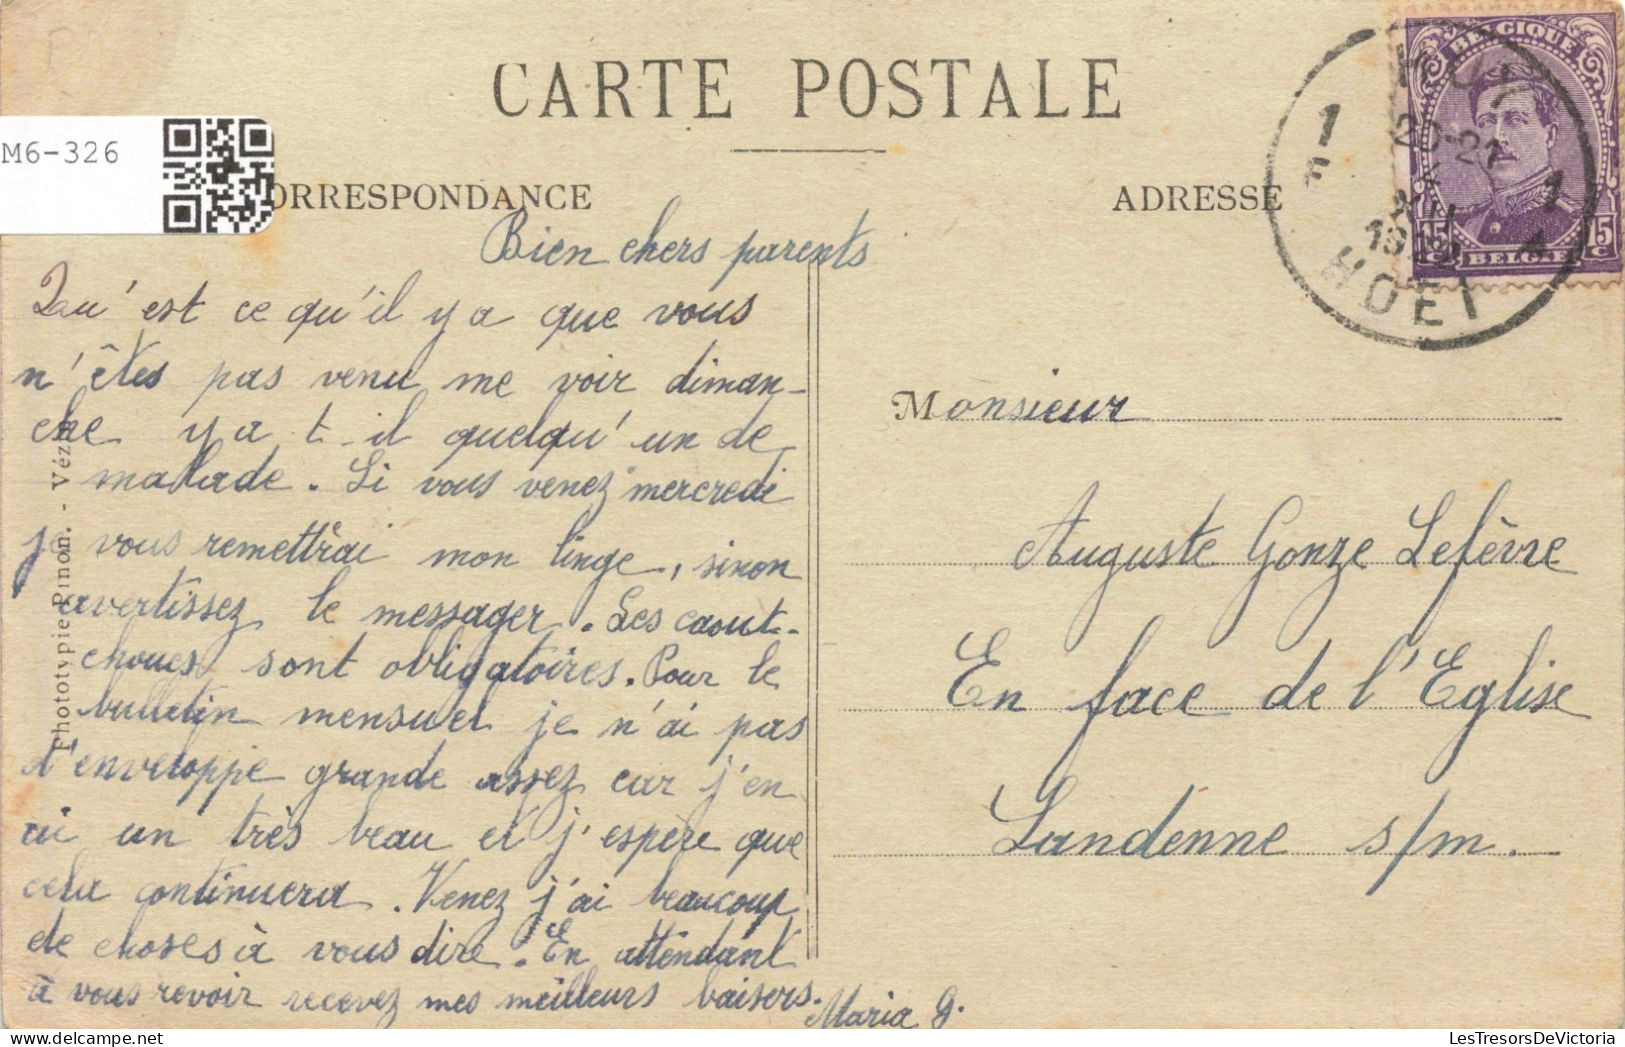 CARTE POSTALE
M6-326
ORRESPONDANCE
ADRESSE
BELGIQUE
15 c 15 c
BELGIË
HUY
20-21
XII
1922
HOEI
1 1
Bien chers parents
Qu'est ce qu'il y a que vous
n'êtes pas venu me voir diman-
che y a t-il quelqu'un de
malade. Si vous venez mercredi
je vous remettrai mon linge, sinon
avertissez le messager. Les caout-
choucs sont obligatoires. Pour le
bulletin mensuel je n'ai pas
d'enveloppe grande assez car j'en
ai un très beau et j'espère que
cela continuera. Venez j'ai beaucoup
de choses à vous dire. En attendant
à vous revoir recevez mes meilleurs baisers.
Maria G.
Monsieur
Auguste Gonze Lefèvre
En face de l'Eglise
Landenne s/m.
Phototypie Pinon. - Véz
LesTresorsDeVictoria